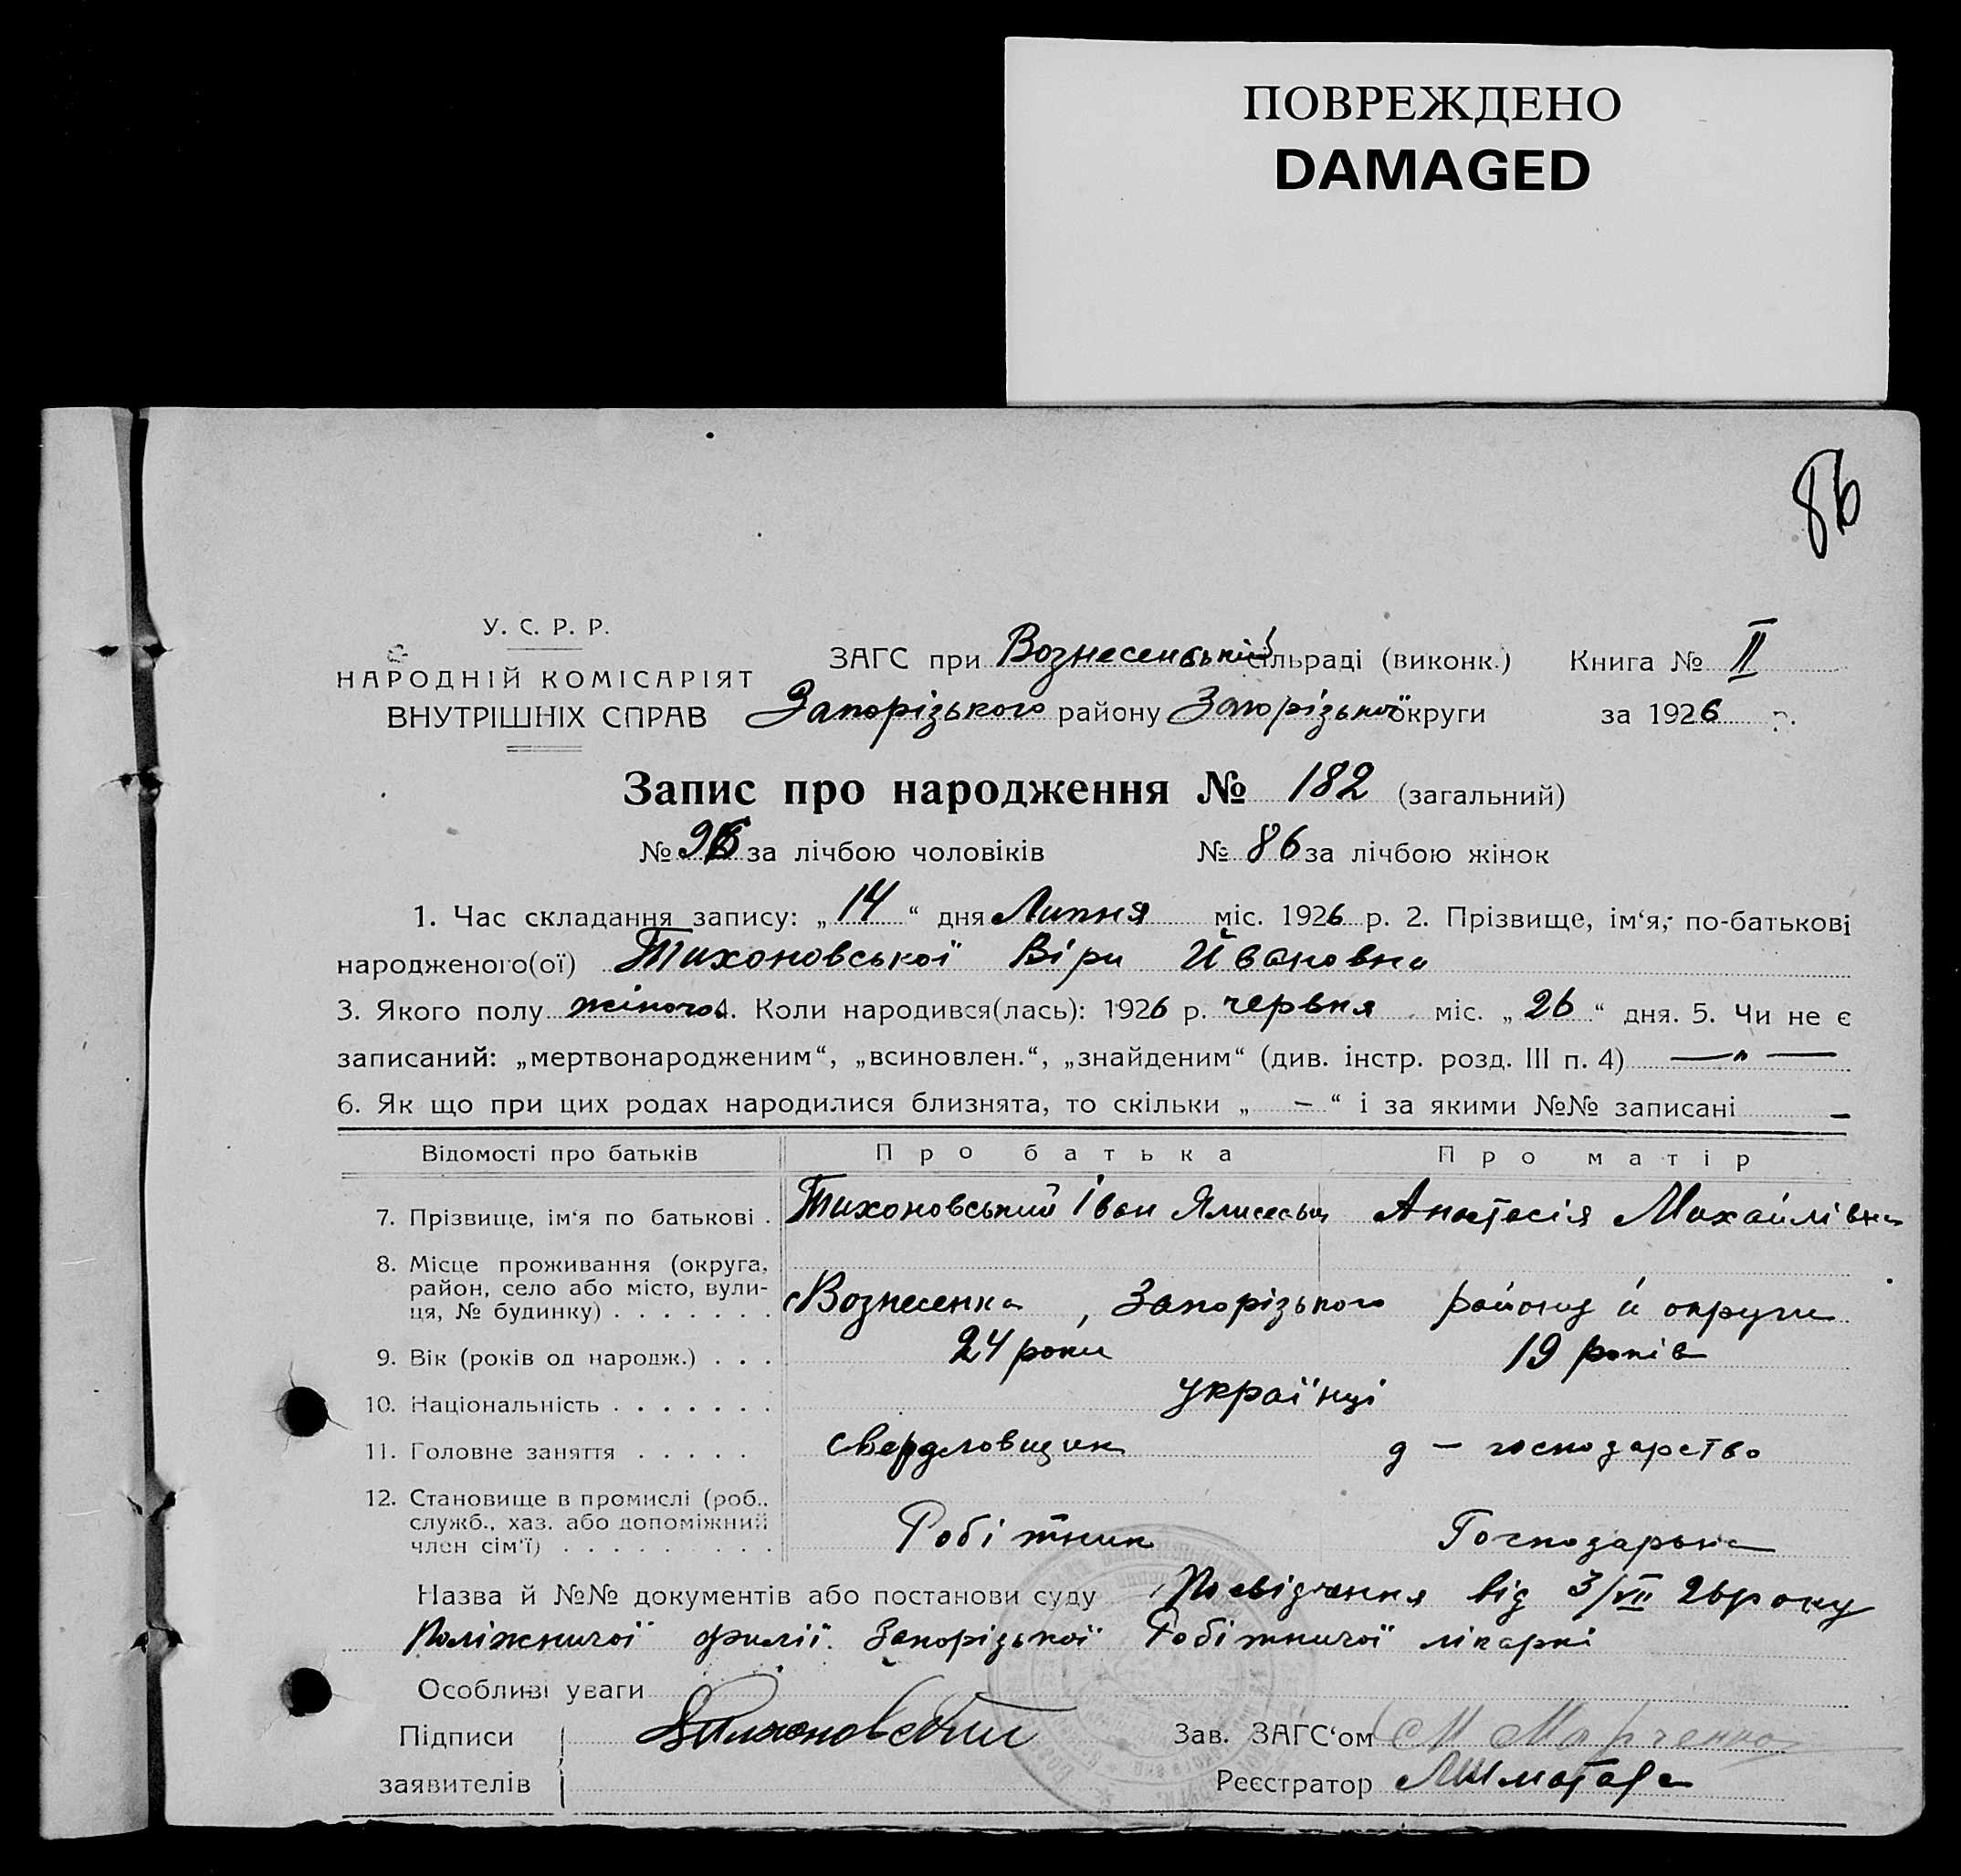 ПОВРЕЖДЕНО
DAMAGED
86
У. С. Р. Р.
НАРОДНІЙ КОМІСАРІЯТ
ВНУТРІШНІХ СПРАВ
ЗАГС при Вознесенській сільраді (виконк.) Книга № II
Запорізького району Запорізької округи за 1926 р.
Запис про народження № 182 (загальний)
№ за лічбою чоловіків № 86 за лічбою жінок
1. Час складання запису: „14“ дня Липня міс. 1926 р. 2. Прізвище, ім‘я, по-батькові
народженого(ої) Тихоновської Віри Йвановна
3. Якого полу жіночого 4. Коли народився(лась): 1926 р. червня міс. „26“ дня. 5. Чи не є
записаний: „мертвонародженим“, „всиновлен.“, „знайденим“ (див. інстр. розд. III п. 4) — „ —
6. Як що при цих родах народилися близнята, то скільки „ – “ і за якими №№ записані –
Відомості про батьків Про батька Про матір
7. Прізвище, ім‘я по батькові . Тихоновський Іван Анастасія Михайлівна
8. Місце проживання (округа,
район, село або місто, вули-
ця, № будинку) . . . . . . . с Вознесенка , Запорізького району й округи
9. Вік (років од народж.) . . . 24 роки 19 років
10. Національність . . . . . . . українці
11. Головне заняття . . . . . свердловщик д – господарство
12. Становище в промислі (роб.,
служб., хаз. або допоміжний
член сім‘ї) . . . . . . . . . Робітник Господарька
Назва й №№ документів або постанови суду Посвідчення від 3/VII 26 року
філії Запорізької Робітничої лікарні
Особливі уваги
Підписи Тихоновский Зав. ЗАГС‘ом М Марченко
заявителів Реєстратор